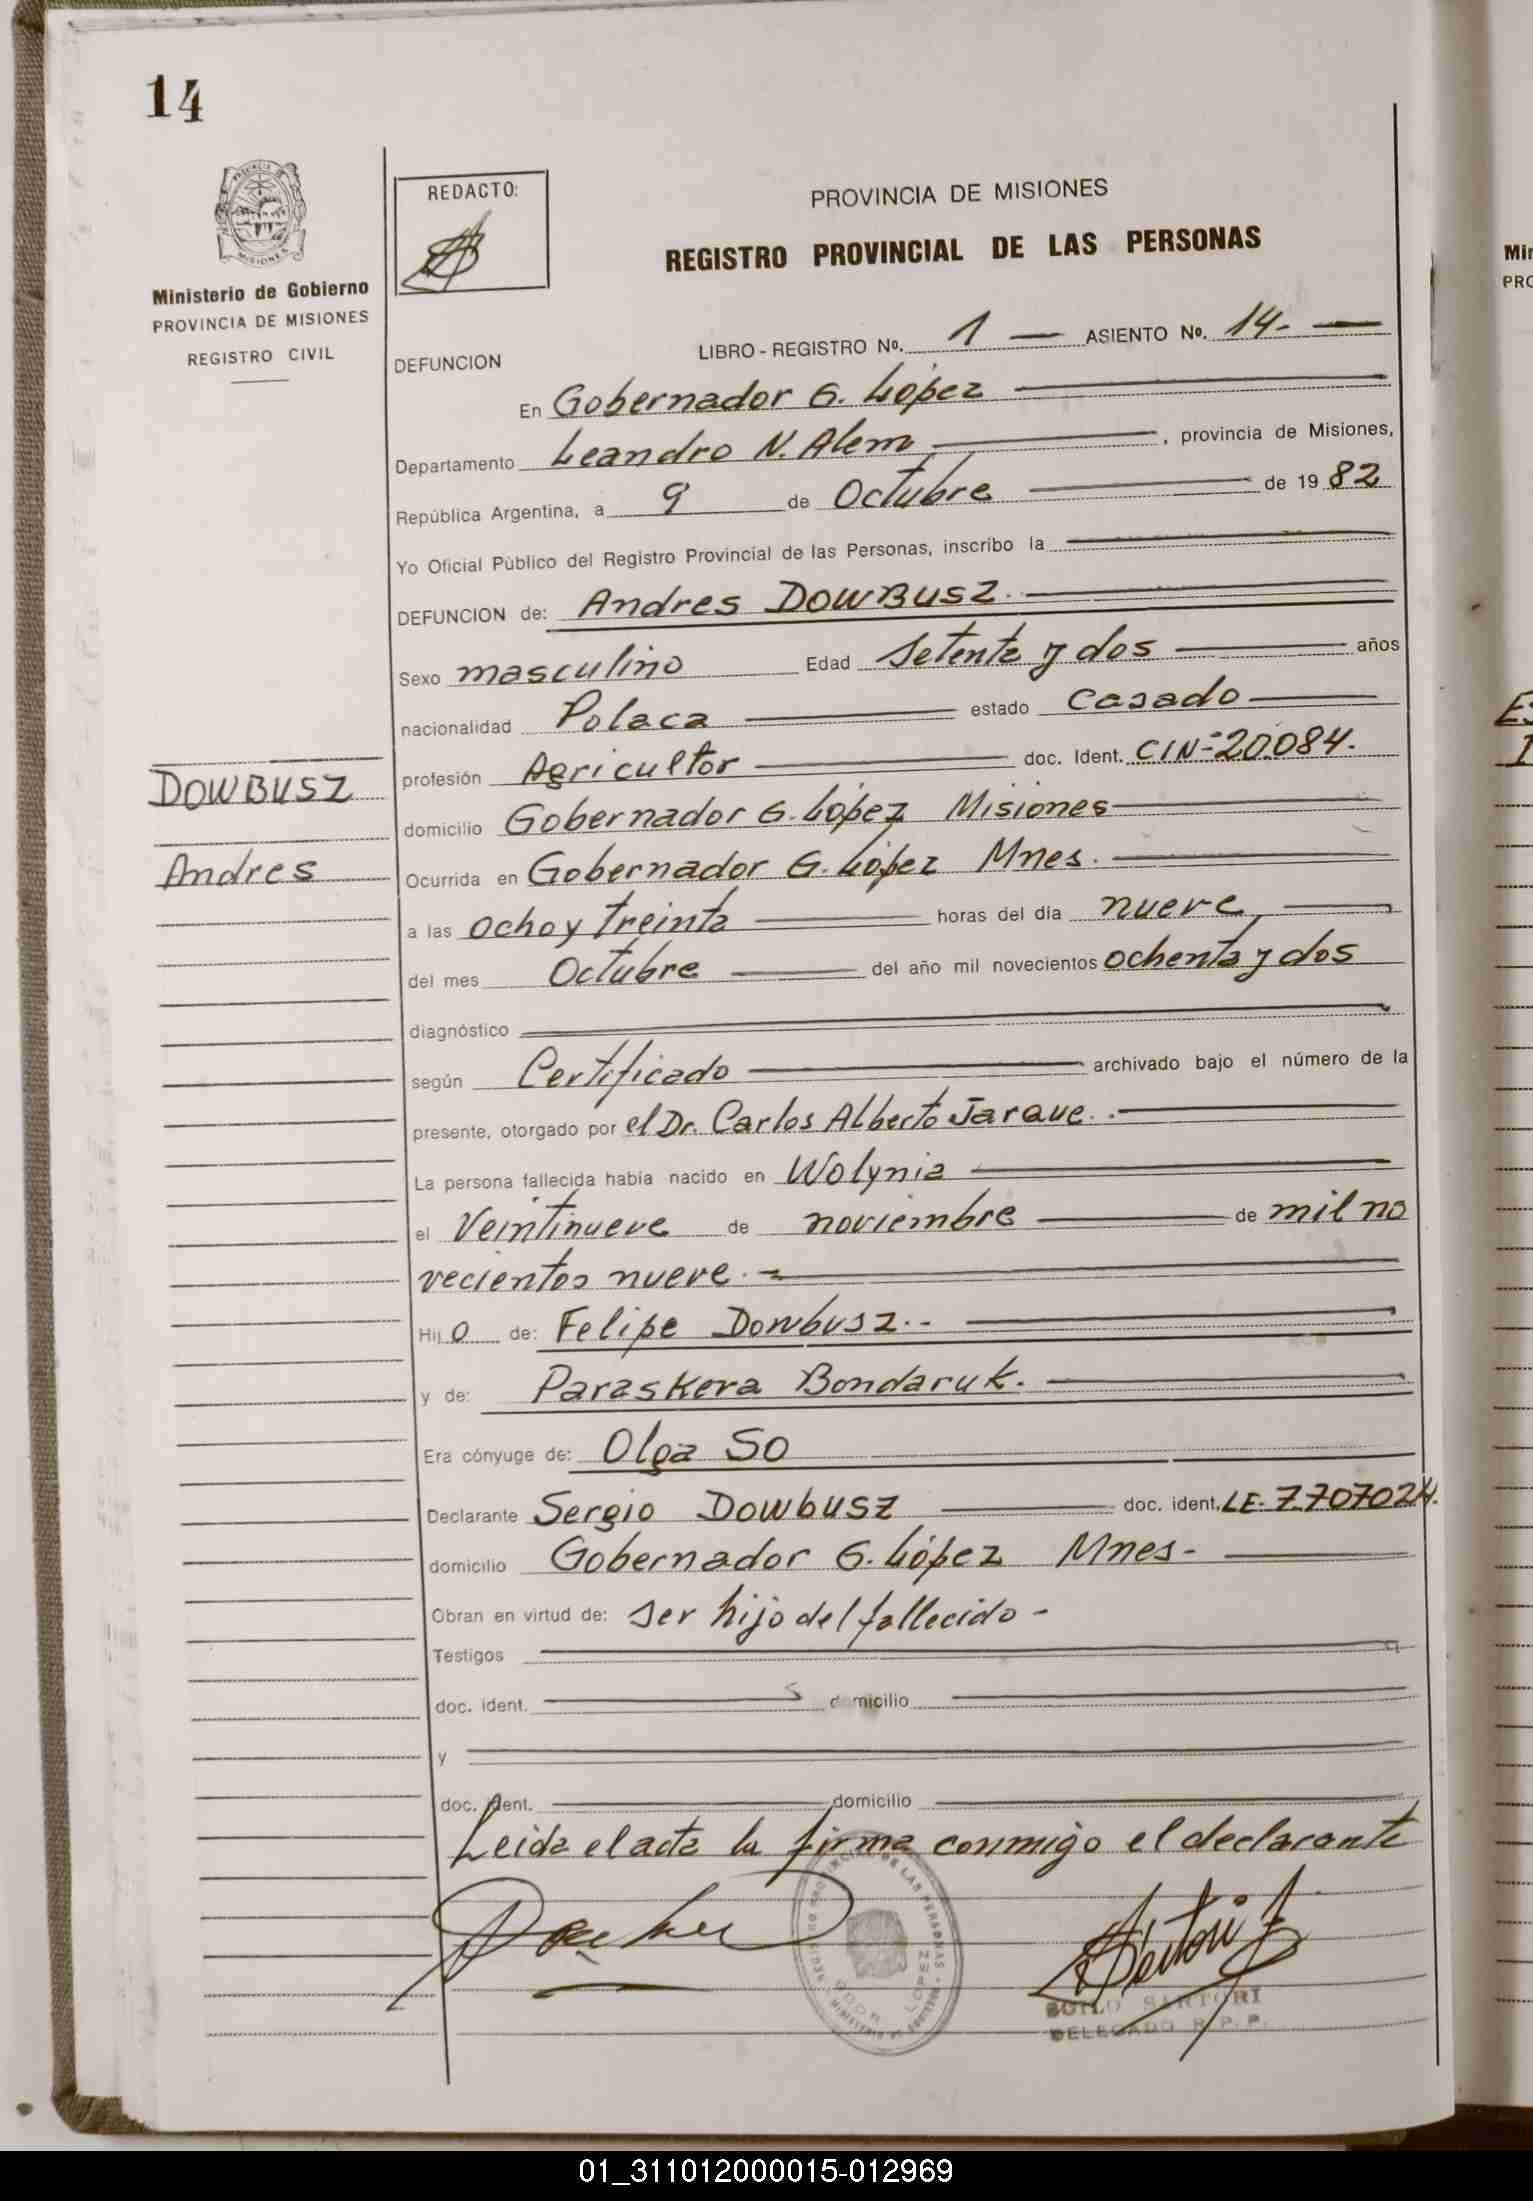 14
PROVINCIA DE
MISIONES
Ministerio de Gobierno
PROVINCIA DE MISIONES
REGISTRO CIVIL
REDACTO:
PROVINCIA DE MISIONES
REGISTRO PROVINCIAL DE LAS PERSONAS
DEFUNCION
LIBRO - REGISTRO Nº. 1 — ASIENTO Nº. 14. —
En Gobernador G. López
Departamento Leandro N. Alem , provincia de Misiones,
República Argentina, a 9 de Octubre de 19 82
Yo Oficial Público del Registro Provincial de las Personas, inscribo la
DEFUNCION de: Andres DOWBUSZ.
Sexo masculino Edad Setenta y dos años
nacionalidad Polaca estado Casado
profesión Agricultor doc. Ident. CIN-20.084.
domicilio Gobernador G. López Misiones
Ocurrida en Gobernador G. López Mnes.
a las ocho y treinta horas del día nueve,
del mes Octubre del año mil novecientos ochenta y dos
diagnóstico
según Certificado archivado bajo el número de la
presente, otorgado por el Dr. Carlos Alberto Jarque.
La persona fallecida había nacido en Wolynia
el Veintinueve de noviembre de mil no
vecientos nueve.
Hij o de: Felipe Dowbusz.-
y de: Paraskeva Bondaruk.
Era cónyuge de: Olga SO
Declarante Sergio DOWBUSZ doc. ident. LE- 7.707024.
domicilio Gobernador G. López Mnes-
Obran en virtud de: ser hijo del fallecido -
Testigos
doc. ident. domicilio
y
doc. ident. domicilio
Leida el acta la firma conmigo el declarante
DOWBUSZ
Andres
GDOR. LOPEZ
SARTORI
DELEGADO R.P.P.
Mi
PRO
01_311012000015-012969